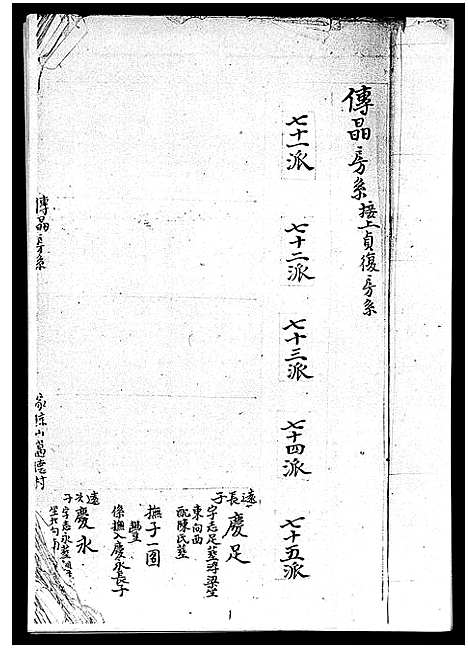 傳晶房系接上貞復房系
七十一派
七十二派
七十三派
七十四派
七十五派
遠長子
慶足
字志足葬潯梁坐
東向西
配陳氏葬
撫子一圖
豐
係撫入慶永長子
遠次子
慶永
字志永葬
傳晶房系
1